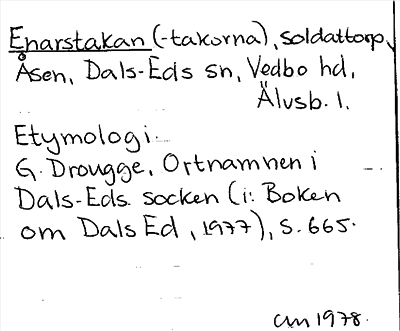 Enarstakan (-takorna), soldattorp,
Åsen, Dals-Eds sn, Vedbo hd,
Älvsb. l.
Etymologi.
G. Drougge, Ortnamnen i
Dals-Eds. socken (i: Boken
om Dals Ed, 1977), s. 665.
1978.